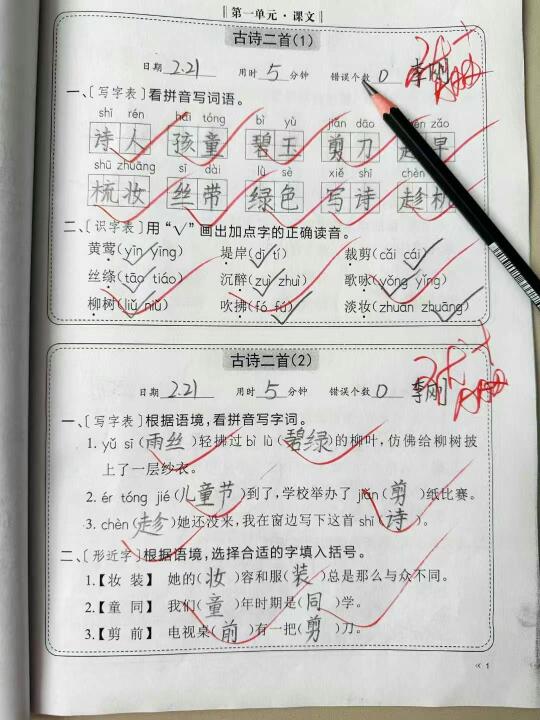 第一单元·课文
古诗二首(1)
日期 2.21 用时 5 分钟 错误个数 0 李刚
一、[写字表]看拼音写词语。
shī rén hái tóng bì yù jiǎn dāo chèn zǎo
诗人 孩童 碧玉 剪刀 趁早
shū zhuāng sī dài lǜ sè xiě shī chèn
梳妆 丝带 绿色 写诗 趁机
二、[识字表]用“√”画出加点字的正确读音。
黄莺(yīn yīng) 堤岸(dī tí) 裁剪(cǎi cái)
丝绦(tāo tiáo) 沉醉(zuì zhuì) 歌咏(yǒng yǐng)
柳树(liǔ niǔ) 吹拂(fó fú) 淡妆(zhuān zhuāng)
古诗二首(2)
日期 2.21 用时 5 分钟 错误个数 0 李刚
一、[写字表]根据语境,看拼音写字词。
1. yǔ sī(雨丝)轻拂过 bì lǜ(碧绿)的柳叶,仿佛给柳树披
上了一层纱衣。
2. ér tóng jié(儿童节)到了,学校举办了 jiǎn(剪)纸比赛。
3. chèn(趁)她还没来,我在窗边写下这首 shī(诗)。
二、[形近字]根据语境,选择合适的字填入括号。
1.【妆 装】 她的(妆)容和服(装)总是那么与众不同。
2.【童 同】 我们(童)年时期是(同)学。
3.【剪 前】 电视桌(前)有一把(剪)刀。
« 1